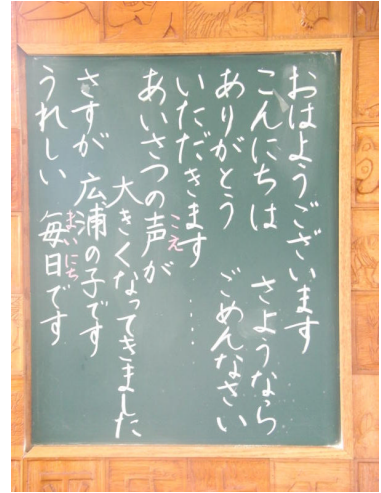 おはようございます
こんにちは　さようなら
ありがとう　ごめんなさい
いただきます……
あいさつの声が
こえ
大きくなってきました
さすが　広浦の子です
うれしい　毎日です
まいにち